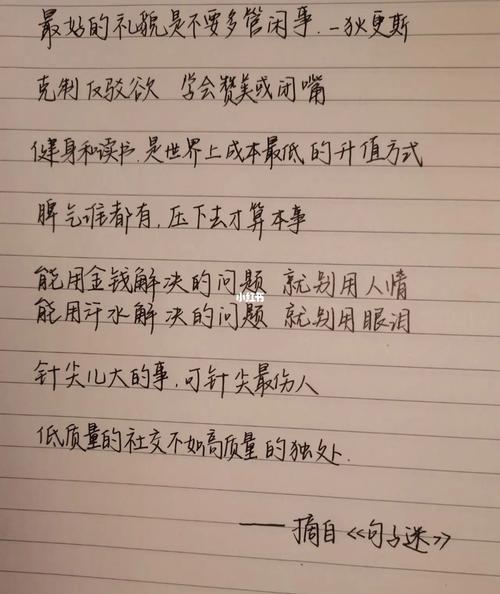 最好的礼貌是不要多管闲事.一狄更斯
克制反驳欲 学会赞美或闭嘴
健身和读书.是世界上成本最低的升值方式
脾气谁都有,压下去才算本事
能用金钱解决的问题 就别用人情
小红书
能用汗水解决的问题 就别用眼泪
针尖儿大的事,可针尖最伤人
低质量的社交不如高质量的独处.
——摘自《句子迷》